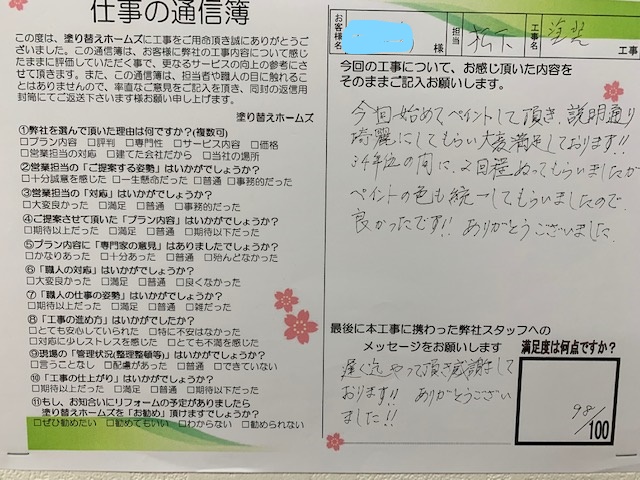 仕事の通信簿
この度は、塗り替えホームズに工事をご用命頂き誠にありがとうご
ざいました。この通信簿は、お客様に弊社の工事内容について感じ
たままに評価していただく事で、更なるサービスの向上の参考にさ
せて頂きます。また、この通信簿は、担当者や職人の目に触れるこ
とはありませんので、率直なご意見をご記入を頂き、同封の返信用
封筒にてご返送下さいます様お願い申し上げます。
塗り替えホームズ
①弊社を選んで頂いた理由は何ですか?(複数可)
□プラン内容 □評判 □専門性 □サービス内容 □価格
□営業担当の対応 □建てた会社だから □当社の場所
②営業担当の「ご提案する姿勢」はいかがでしょうか?
□十分誠意を感じた □一生懸命だった □普通 □事務的だった
③営業担当の「対応」はいかがでしょうか?
□大変良かった □満足 □普通 □事務的だった
④ご提案させて頂いた「プラン内容」はいかがでしょうか?
□期待以上だった □満足 □普通 □期待以下だった
⑤プラン内容に「専門家の意見」はありましたでしょうか?
□かなりあった □十分あった □普通 □殆んどなかった
⑥「職人の対応」はいかがでしょうか?
□大変良かった □満足 □普通 □良くなかった
⑦「職人の仕事の姿勢」はいかがでしょうか?
□期待以上だった □満足 □普通 □雑だった
⑧「工事の進め方」はいかがでしたか?
□とても安心していられた □特に不安はなかった
□対応に少しストレスを感じた □とても不満を感じた
⑨現場の「管理状況(整理整頓等)」はいかがでしょうか?
□言うことなし □配慮があった □普通 □できていない
⑩「工事の仕上がり」はいかがでしょうか?
□期待以上だった □満足 □普通 □期待以下だった
⑪もし、お知合いにリフォームの予定がありましたら
塗り替えホームズを「お勧め」頂けますでしょうか?
□ぜひ勧めたい □勧めてもいい □わからない □勧められない
お客様名 様 担当 松下 工事名 塗装 工事
今回の工事について、お感じ頂いた内容を
そのままご記入お願いします。
今回始めてペイントして頂き、説明通り
綺麗にしてもらい大変満足しております!!
34年位の間に、2回程ぬってもらいましたが
ペイントの色も統一してもらいましたので、
良かったです!! ありがとうございました
最後に本工事に携わった弊社スタッフへの
メッセージをお願いします
遅く迄やって頂き感謝して
おります!! ありがとうござい
ました!!
満足度は何点ですか?
98/100